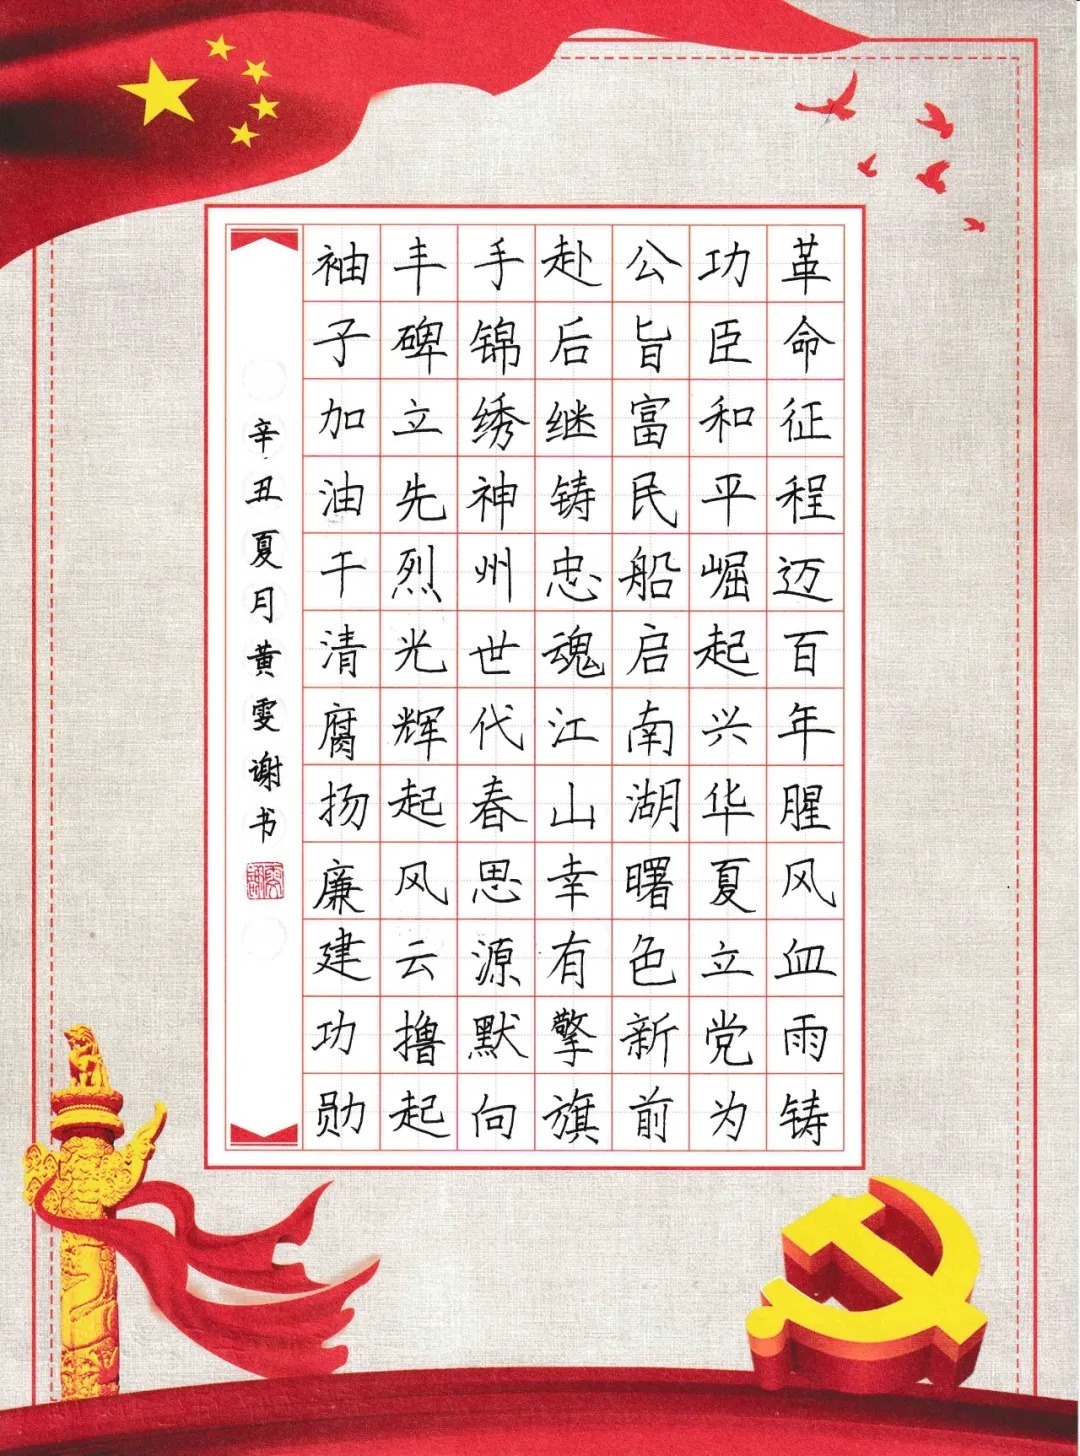 革命征程迈百年腥风血雨铸
功臣和平崛起兴华夏立党为
公旨富民船启南湖曙色新前
赴后继铸忠魂江山幸有擎旗
手锦绣神州世代春思源默向
丰碑立先烈光辉起风云撸起
袖子加油干清腐扬廉建功勋
辛丑夏月黄雯谢书